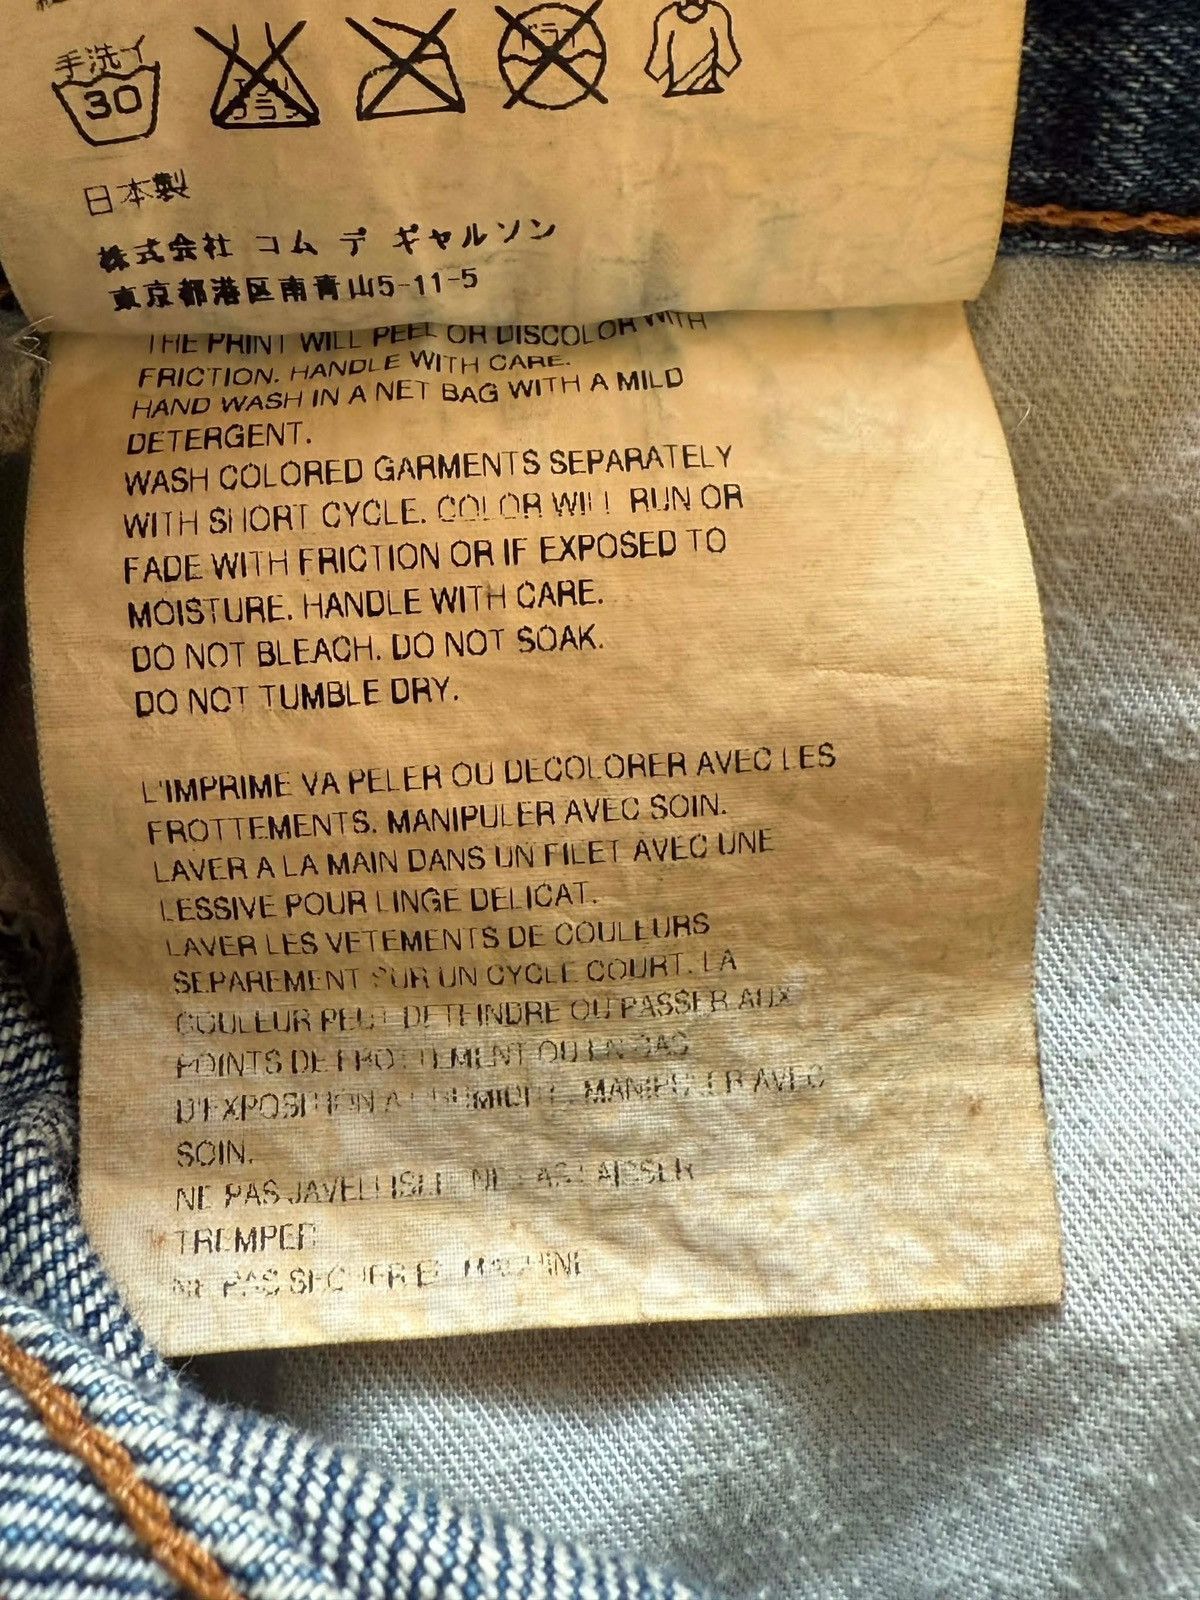 手洗イ
30
エンソ
サラシ
ドライ
日本製
株式会社 コム デ ギャルソン
東京都港区南青山5-11-5
THE PRINT WILL PEEL OR DISCOLOR WITH
FRICTION. HANDLE WITH CARE.
HAND WASH IN A NET BAG WITH A MILD
DETERGENT.
WASH COLORED GARMENTS SEPARATELY
WITH SHORT CYCLE. COLOR WILL RUN OR
FADE WITH FRICTION OR IF EXPOSED TO
MOISTURE. HANDLE WITH CARE.
DO NOT BLEACH. DO NOT SOAK.
DO NOT TUMBLE DRY.
L'IMPRIME VA PELER OU DECOLORER AVEC LES
FROTTEMENTS. MANIPULER AVEC SOIN.
LAVER A LA MAIN DANS UN FILET AVEC UNE
LESSIVE POUR LINGE DELICAT.
LAVER LES VETEMENTS DE COULEURS
SEPAREMENT SUR UN CYCLE COURT. LA
COULEUR PEUT DETEINDRE OU PASSER AUX
POINTS DE FROTTEMENT OU EN CAS
D'EXPOSITION A L'HUMIDITE. MANIPULER AVEC
SOIN.
NE PAS JAVELLISER. NE PAS LAISSER
TREMPER
NE PAS SECHER EN MACHINE